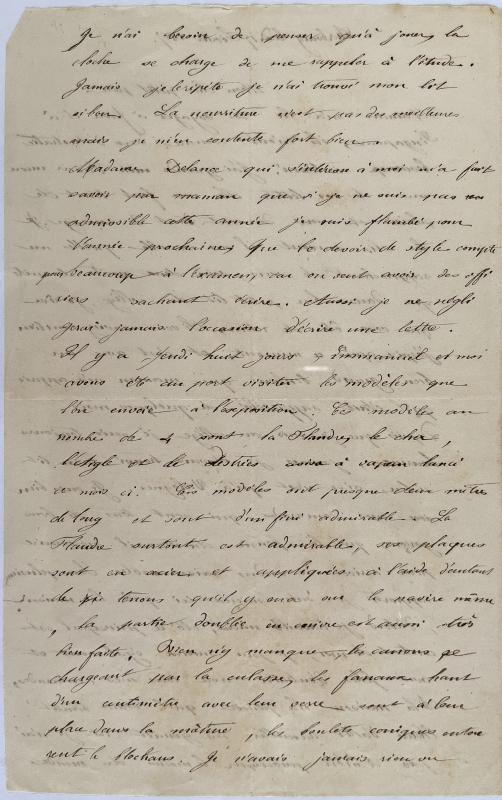 Je n'ai besoin de penser qu'à jouer, la
cloche se charge de me rappeler à l'étude.
Jamais je le répète je n'ai trouvé mon lit
si bon. La nourriture n'est pas des meilleures
mais je m'en contente fort bien.
Madame Delance qui s'intéresse à moi m'a fait
savoir par maman que si je ne suis pas
admissible cette année je suis flambé pour
l'année prochaine, que le devoir de style compte
pour beaucoup à l'examen, car on veut avoir des offi
ciers sachant écrire. Aussi je ne négli
gerai jamais l'occasion d'écrire une lettre.
Il y a Jeudi huit jours Emmanuel et moi
avons été au port visiter les modèles que
l'on envoie à l'exposition. Ces modèles au
nombre de 4 sont la Flandre, le cher,
l'Aigle et le à vapeur lancé
ce mois ci. Ces modèles ont presque deux mètres
de long et sont d'un fini admirable. La
Flandre surtout est admirable, ses plaques
sont en acier et appliquées à l'aide d'autant
de tenons qu'il y en a sur le navire même
, la partie doublée en cuivre est aussi très
bien faite. Rien n'y manque les canons se
chargeant par la culasse, les fanaux haut
d'un centimètre avec leur verre sont à leur
place dans la mâture, les boulets coniques entou
rent le blockaus. Je n'avais jamais rien vu